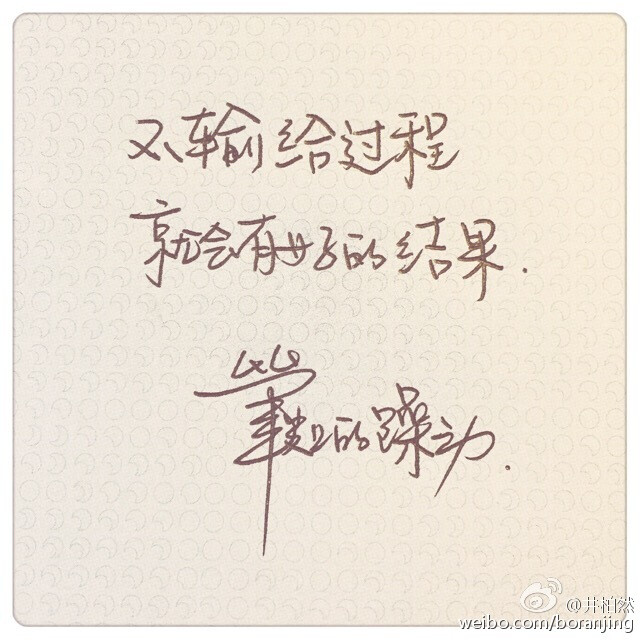 不输给过程
就会有好的结果.
笔尖上的躁动.
@井柏然
weibo.com/boranjing